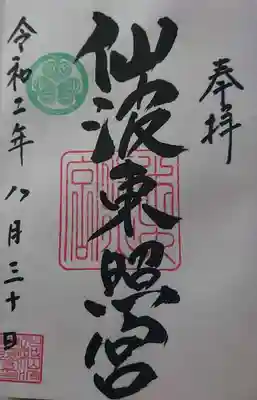 奉拝
仙波東照宮
令和二年八月三十日